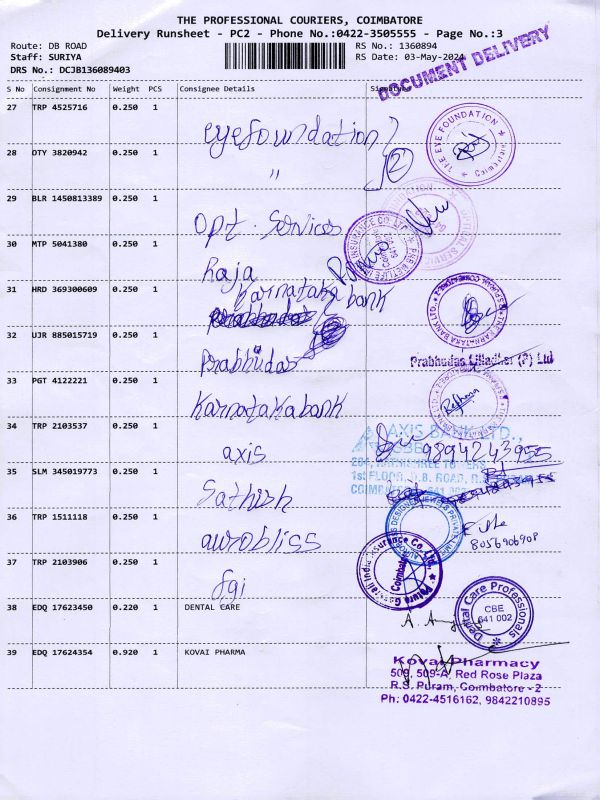 THE PROFESSIONAL COURIERS, COIMBATORE
Delivery Runsheet - PC2 - Phone No.:0422-3505555 - Page No.:3
Route: DB ROAD
RS No.: 1360894
Staff: SURIYA
RS Date: 03-May-2024
DRS No.: DCJB136089403
DOCUMENT DELIVERY
S No Consignment No Weight PCS Consignee Details Signature
27 TRP 4525716 0.250 1
eyefoundation
THE EYE FOUNDATION
28 OTY 3820942 0.250 1
"
29 BLR 1450813389 0.250 1
Opt. Services
30 MTP 5041380 0.250 1
Raja
INSURANCE CO. LTD.
31 HRD 369300609 0.250 1
Karnataka bank
THE KARNATAKA BANK LTD.
32 UJR 885015719 0.250 1
Prabhudas
Prabhudas Lilladher (P) Ltd
33 PGT 4122221 0.250 1
Karnataka bank
34 TRP 2103537 0.250 1
axis
AXIS BANK LTD.,
9894243955
1st FLOOR, D.B. ROAD, R.S.
35 SLM 345019773 0.250 1
Sathish
36 TRP 1511118 0.250 1
aurobliss
8056906908
37 TRP 2103906 0.250 1
fgi
Future Generali India Insurance Co. Ltd.,
Coimbatore
38 EDQ 17623450 0.220 1 DENTAL CARE
Dental Care Professionals
CBE
641 002
39 EDQ 17624354 0.920 1 KOVAI PHARMA
Kovai Pharmacy
509, 509-A, Red Rose Plaza
R.S. Puram, Coimbatore - 2
Ph: 0422-4516162, 9842210895